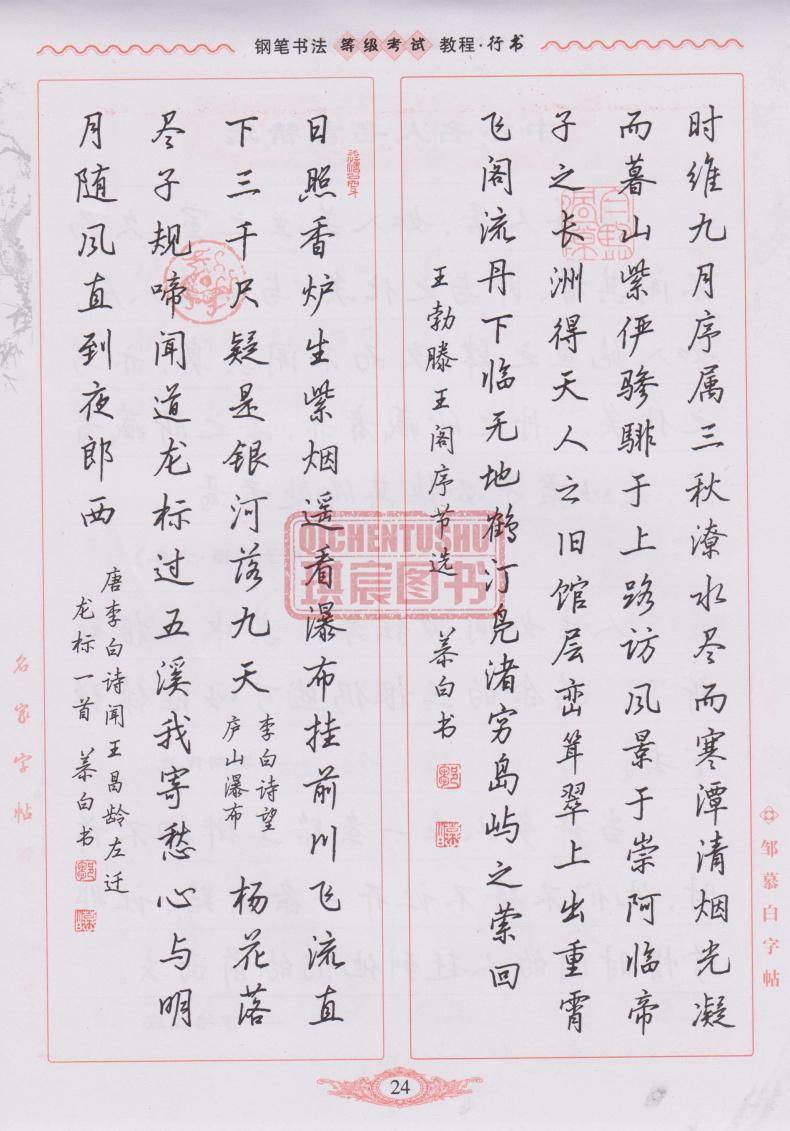 钢笔书法 等级考试 教程·行书
时维九月序属三秋潦水尽而寒潭清烟光凝
而暮山紫俨骖騑于上路访风景于崇阿临帝
子之长洲得天人之旧馆层峦耸翠上出重霄
飞阁流丹下临无地鹤汀凫渚穷岛屿之萦回
王勃滕王阁序节选 慕白书
日照香炉生紫烟遥看瀑布挂前川飞流直
下三千尺疑是银河落九天 李白诗望
庐山瀑布
杨花落
尽子规啼闻道龙标过五溪我寄愁心与明
月随风直到夜郎西
唐李白诗闻王昌龄左迁
龙标一首 慕白书
QICHENTUSHU
琪宸图书
名家字帖
邹慕白字帖
24